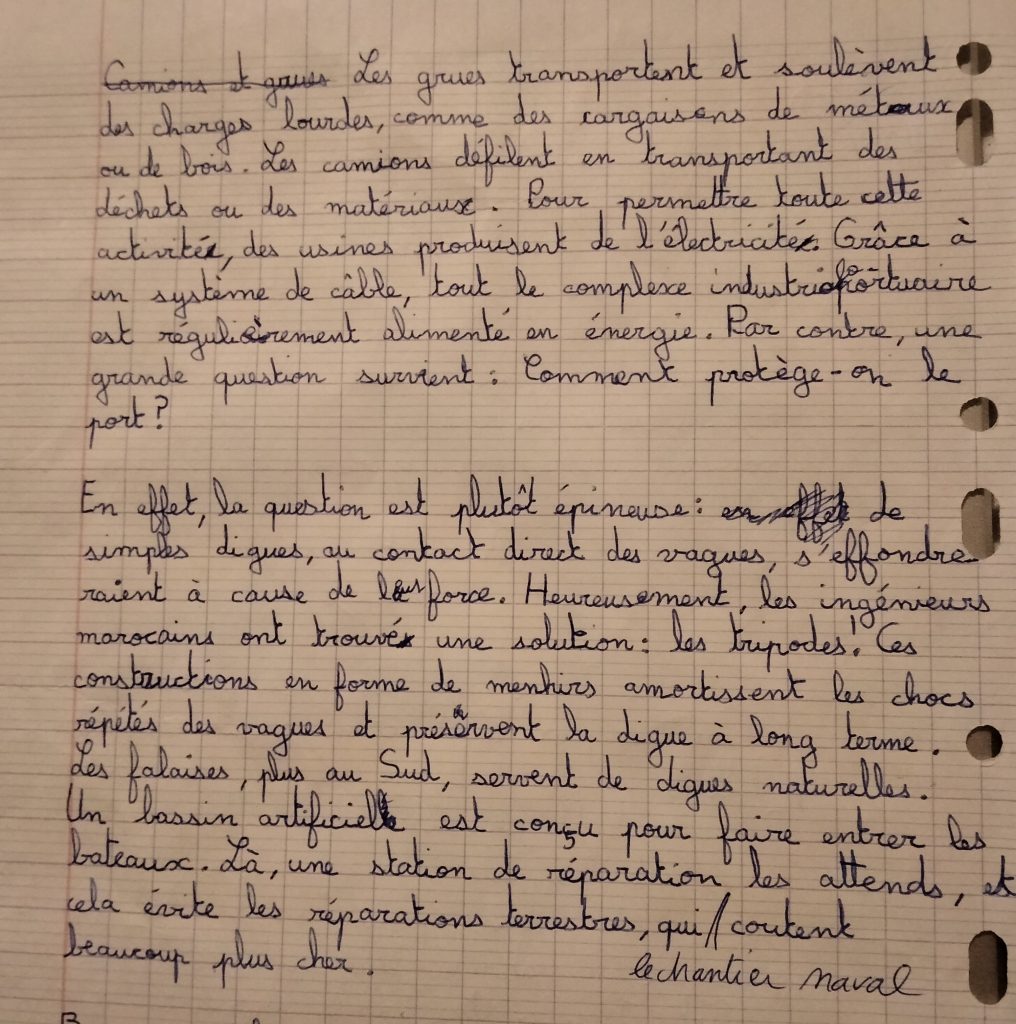 Camions et grues Les grues transportent et soulèvent
des charges lourdes, comme des cargaisons de métaux
ou de bois. Les camions défilent en transportant des
déchets ou des matériaux. Pour permettre toute cette
activité, des usines produisent de l'électricité. Grâce à
un système de câble, tout le complexe industrialo-portuaire
est régulièrement alimenté en énergie. Par contre, une
grande question survient : Comment protège-on le
port ?
En effet, la question est plutôt épineuse : en effet de
simples digues, au contact direct des vagues, s'effondre-
raient à cause de leur force. Heureusement, les ingénieurs
marocains ont trouvé une solution : les tripodes ! Ces
constructions en forme de menhirs amortissent les chocs
répétés des vagues et préservent la digue à long terme.
Les falaises, plus au Sud, servent de digues naturelles.
Un bassin artificiel est conçu pour faire entrer les
bateaux. Là, une station de réparation les attends, et
cela évite les réparations terrestres, qui coutent
beaucoup plus cher.
le chantier naval